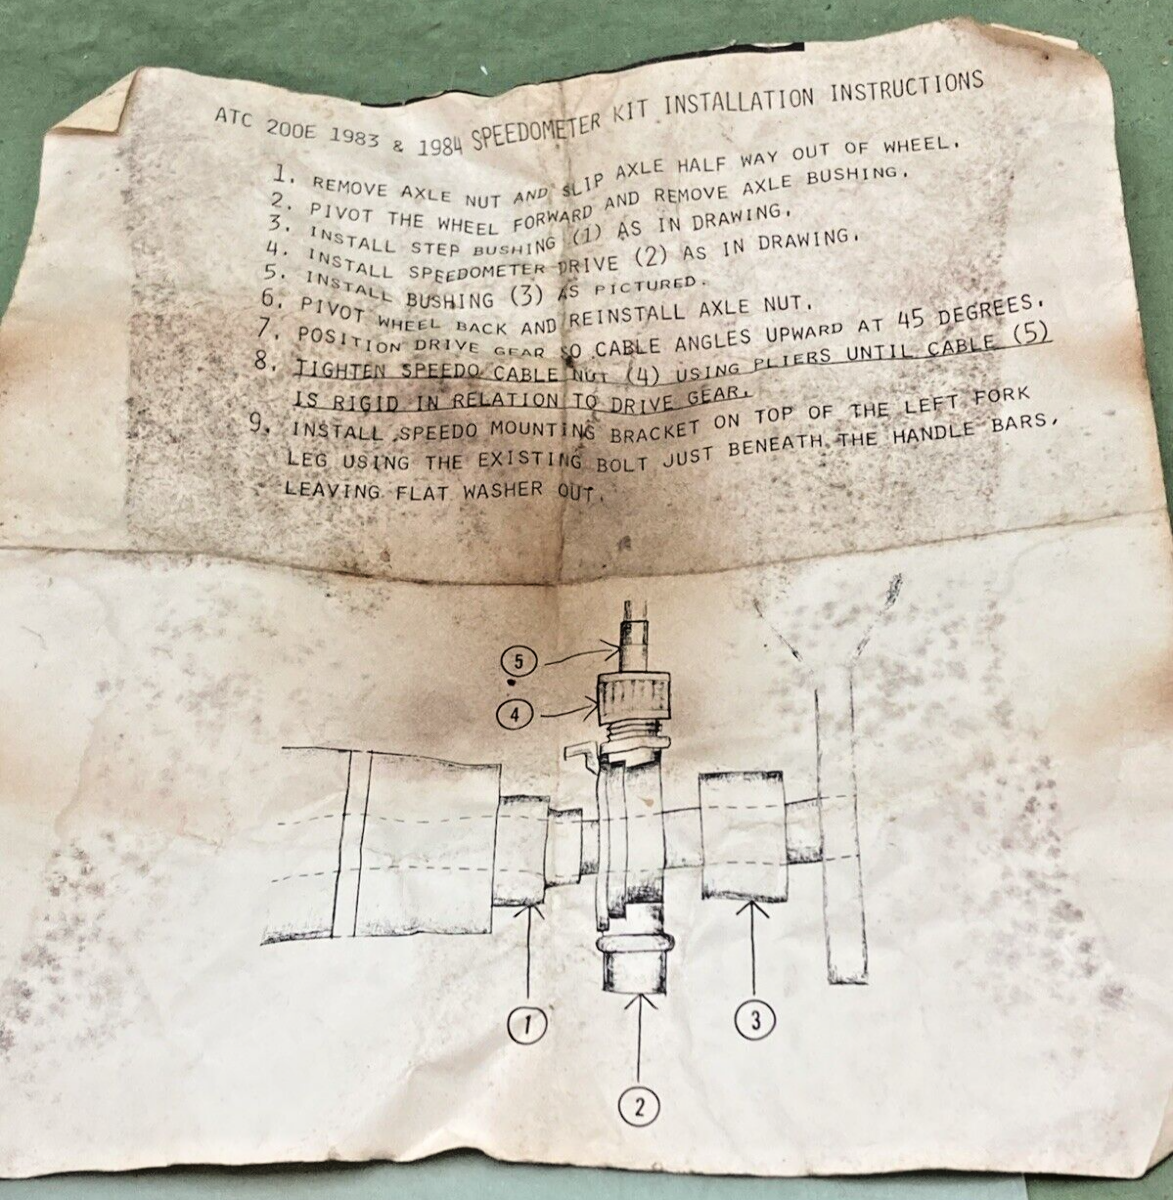 ATC 200E 1983 & 1984 SPEEDOMETER KIT INSTALLATION INSTRUCTIONS
1. REMOVE AXLE NUT AND SLIP AXLE HALF WAY OUT OF WHEEL.
2. PIVOT THE WHEEL FORWARD AND REMOVE AXLE BUSHING.
3. INSTALL STEP BUSHING (1) AS IN DRAWING.
4. INSTALL SPEEDOMETER DRIVE (2) AS IN DRAWING.
5. INSTALL BUSHING (3) AS PICTURED.
6. PIVOT WHEEL BACK AND REINSTALL AXLE NUT.
7. POSITION DRIVE GEAR SO CABLE ANGLES UPWARD AT 45 DEGREES.
8. TIGHTEN SPEEDO CABLE NUT (4) USING PLIERS UNTIL CABLE (5)
IS RIGID IN RELATION TO DRIVE GEAR.
9. INSTALL SPEEDO MOUNTING BRACKET ON TOP OF THE LEFT FORK
LEG USING THE EXISTING BOLT JUST BENEATH THE HANDLE BARS,
LEAVING FLAT WASHER OUT.
5
4
1
3
2